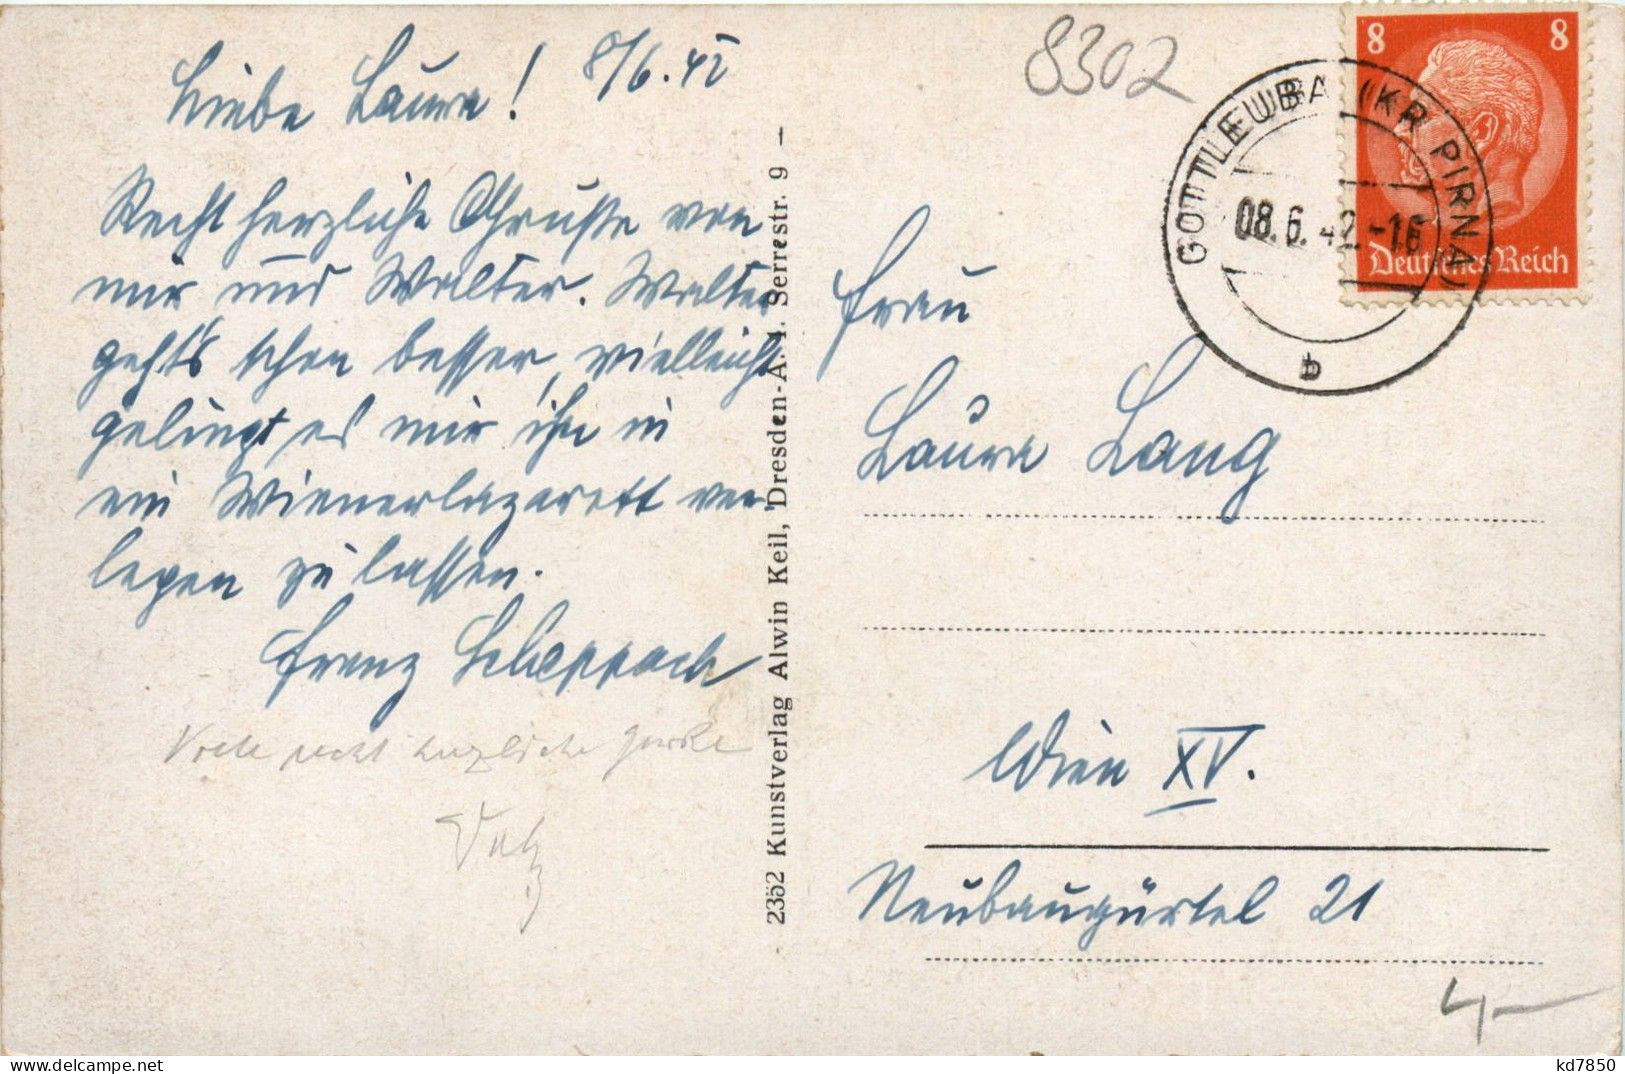 8/6.42
Liebe Laura!
Recht herzliche Grüße von
mir und Walter. Walter
geht's schon besser, vielleicht
gelingt es mir ihn in
ein Wienerlazarett ver-
legen zu lassen.
Franz
recht herzliche
2352 Kunstverlag Alwin Keil, Dresden-A. 1. Serrestr. 9 —
8302
8 8
Deutsches Reich
GOTTLEUBA (KR PIRNA)
08.6.42.-16
b
Frau
Laura Lang
Wien XV.
Neubaugürtel 21
4,-
kd7850